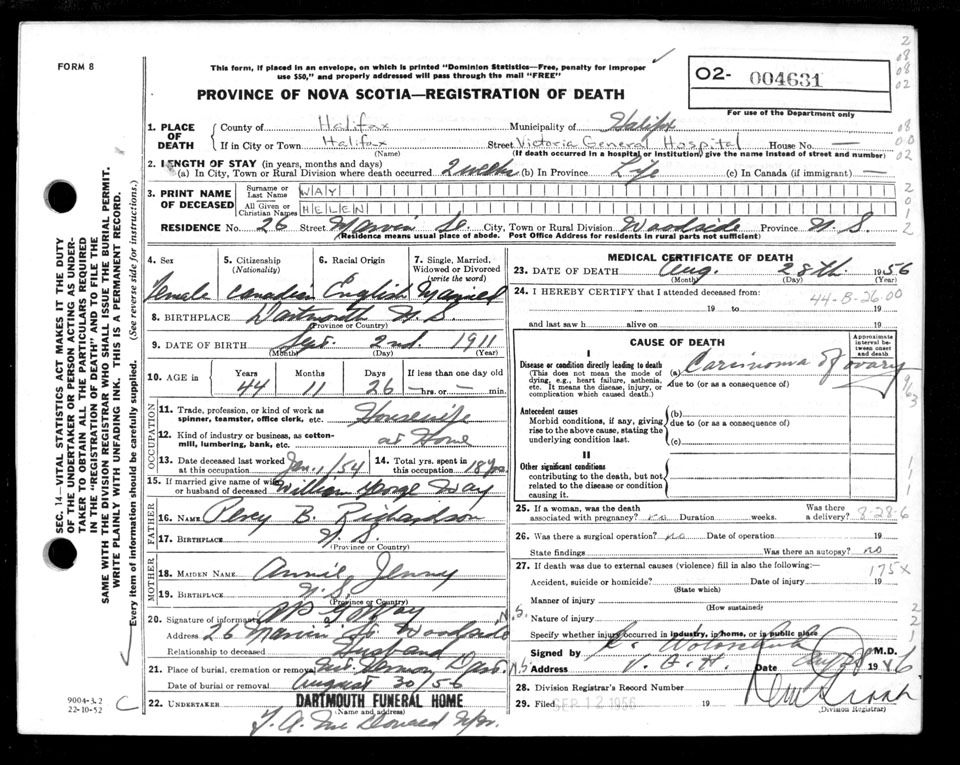 FORM 8
This form, if placed in an envelope, on which is printed "Dominion Statistics—Free, penalty for improper
use $50," and properly addressed will pass through the mail "FREE"
O2- 004631
PROVINCE OF NOVA SCOTIA—REGISTRATION OF DEATH
For use of the Department only
1. PLACE OF DEATH
County of Halifax Municipality of Halifax
If in City or Town Halifax Street Victoria General Hospital House No. —
(Name) (If death occurred in a hospital or institution, give the name instead of street and number)
2. LENGTH OF STAY (in years, months and days)
(a) In City, Town or Rural Division where death occurred 2 weeks (b) In Province Life (c) In Canada (if immigrant) —
3. PRINT NAME OF DECEASED
Surname or Last Name WAY
All Given or Christian Names HELEN
RESIDENCE No. 26 Street Marvin St. City, Town or Rural Division Woodside Province N. S.
(Residence means usual place of abode. Post Office Address for residents in rural parts not sufficient)
4. Sex 5. Citizenship (Nationality) 6. Racial Origin 7. Single, Married, Widowed or Divorced (write the word)
Female Canadian English Married
8. BIRTHPLACE Dartmouth N. S.
(Province or Country)
9. DATE OF BIRTH Sept. 2nd. 1911
(Month) (Day) (Year)
10. AGE in Years Months Days If less than one day old
44 11 26 — hrs. or — min.
OCCUPATION
11. Trade, profession, or kind of work as spinner, teamster, office clerk, etc. Housewife
12. Kind of industry or business, as cotton-mill, lumbering, bank, etc. at Home
13. Date deceased last worked at this occupation Jan. 1/54 14. Total yrs. spent in this occupation 18 yrs.
15. If married give name of wife or husband of deceased William George Way
FATHER
16. NAME Percy B. Richardson
17. BIRTHPLACE N. S.
(Province or Country)
MOTHER
18. MAIDEN NAME Annie Jenny
19. BIRTHPLACE N.S.
(Province or Country)
20. Signature of informant Way
Address 26 Marvin St. Woodside N.S.
Relationship to deceased Husband
21. Place of burial, cremation or removal Mt. Hermon Dart. N.S.
Date of burial or removal August 30/56
22. UNDERTAKER DARTMOUTH FUNERAL HOME
(Name and address)
MEDICAL CERTIFICATE OF DEATH
23. DATE OF DEATH Aug. 28th. 1956
(Month) (Day) (Year)
24. I HEREBY CERTIFY that I attended deceased from:
44-8-26.00
19 to 19
and last saw h alive on 19
CAUSE OF DEATH
Approximate interval between onset and death
I
Disease or condition directly leading to death (a) Carsinoma of ovary
(This does not mean the mode of dying, e.g., heart failure, asthenia, etc. It means the disease, injury, or complication which caused death.)
due to (or as a consequence of)
Antecedent causes (b)
Morbid conditions, if any, giving rise to the above cause, stating the underlying condition last.
due to (or as a consequence of)
(c)
II
Other significant conditions
contributing to the death, but not related to the disease or condition causing it.
25. If a woman, was the death associated with pregnancy? no Duration weeks. Was there a delivery? 8-28-6
26. Was there a surgical operation? no Date of operation 19
State findings Was there an autopsy? no
27. If death was due to external causes (violence) fill in also the following:— 175x
Accident, suicide or homicide? Date of injury 19
(State which)
Manner of injury
(How sustained)
Nature of injury
Specify whether injury occurred in industry, in home, or in public place
Signed by M.D.
Address V. G. H. Date Aug 28 1956
28. Division Registrar's Record Number
29. Filed SEP 12 1956 19
(Division Registrar)
SEC. 14—VITAL STATISTICS ACT MAKES IT THE DUTY
OF THE UNDERTAKER OR PERSON ACTING AS UNDER-
TAKER TO OBTAIN ALL THE PARTICULARS REQUIRED
IN THE "REGISTRATION OF DEATH" AND TO FILE THE
SAME WITH THE DIVISION REGISTRAR WHO SHALL ISSUE THE BURIAL PERMIT.
WRITE PLAINLY WITH UNFADING INK. THIS IS A PERMANENT RECORD.
Every item of information should be carefully supplied. (See reverse side for instructions.)
9004-3.2
22-10-52
C